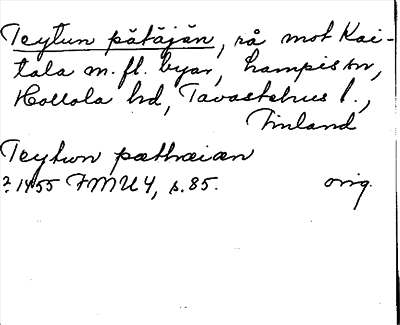 Teytun pätäjän, rå mot Kai-
tala m. fl. byar, Lampis sn,
Hollola hd, Tavastehus l.,
Finland
Teytwn pæthæiæn
? 1455 FMU 4, s. 85. orig.